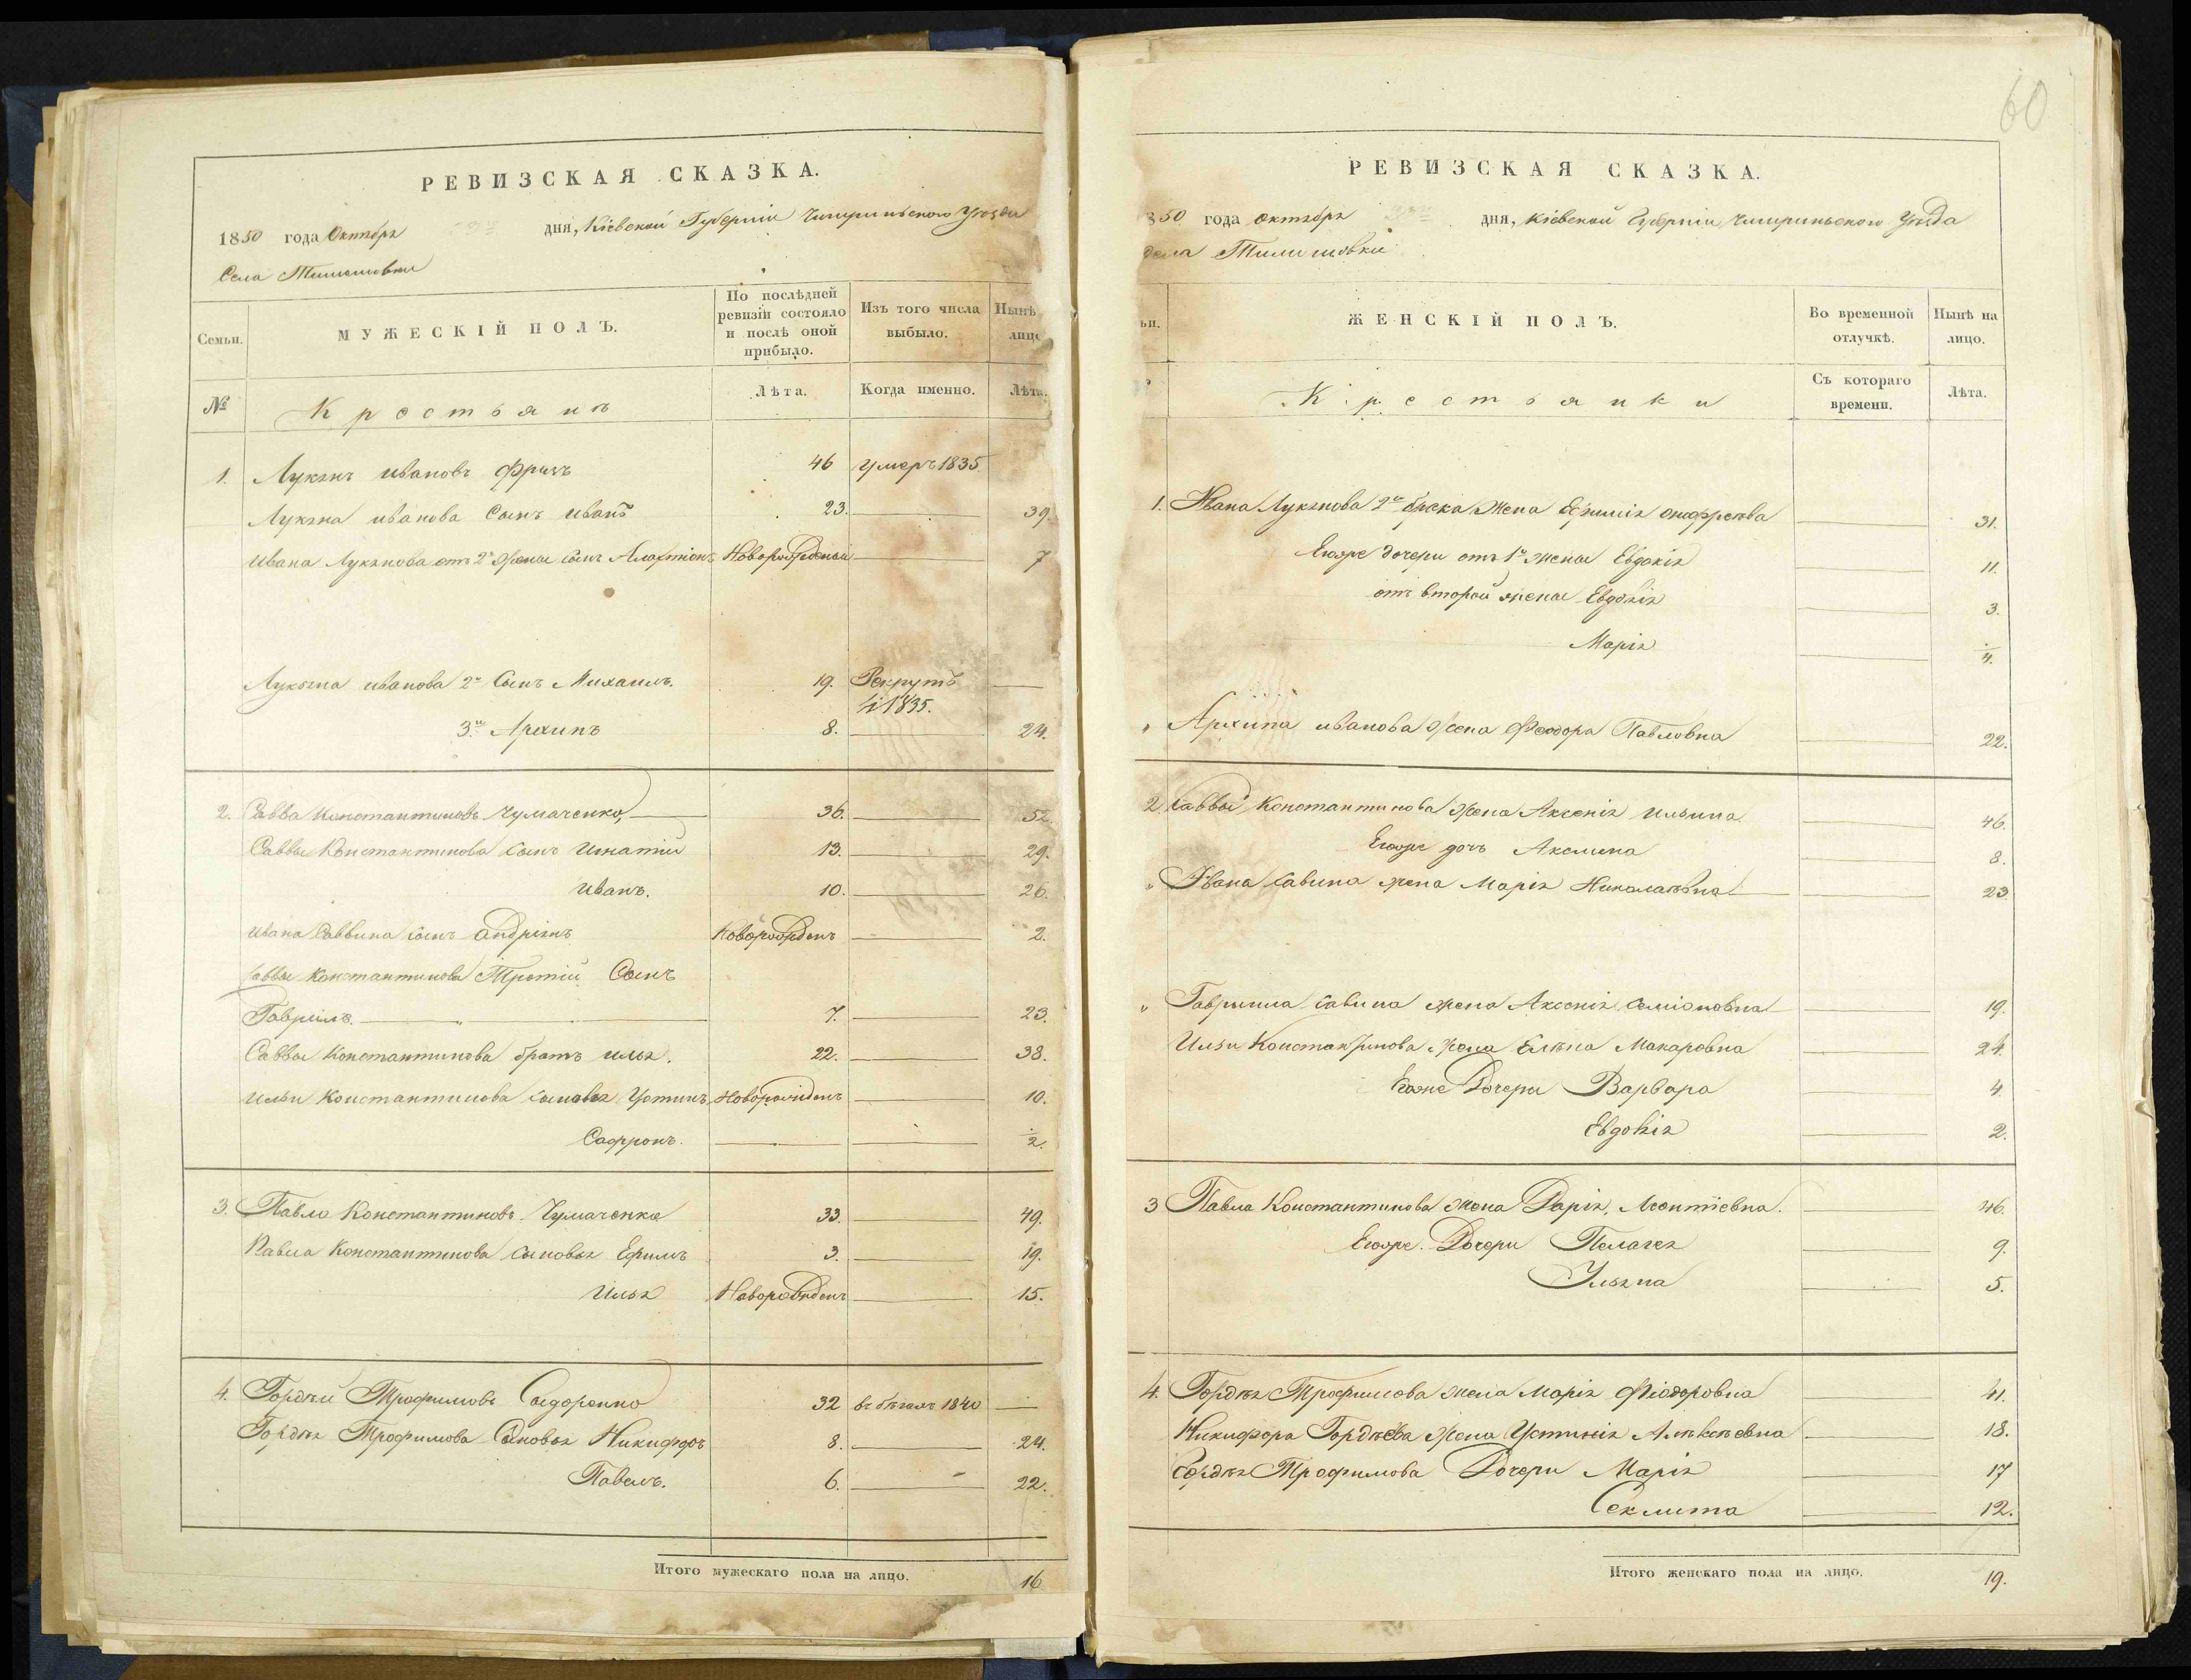 60
РЕВИЗСКАЯ СКАЗКА.
1850 года Октября дня, Кіевской Губерніи Чигириньского Уѣзда
Села Тимошовки
Семьи.
МУЖЕСКІЙ ПОЛЪ.
По послѣдней ревизіи состояло и послѣ оной прибыло.
Изъ того числа выбыло.
Нынѣ лицо
№
Крестьянъ
Лѣта.
Когда именно.
Лѣта.
1. Лукянъ ивановъ Фричъ 46 умеръ 1835.
Лукяна иванова Сынъ иванъ 23. 39.
ивана Лукянова отъ 2й Жены сынъ Новорожденый 7
Лукьяна иванова 2й Сынъ Михаилъ. 19. Рекрутъ
1835.
3й Архипъ 8. 24.
2. Савва Константиновъ Чумаченко, 36. 52.
Саввы Константинова сынъ Игнатій 13. 29.
Иванъ. 10. 26.
ивана Саввина сынъ андріянъ Новорожденъ 2.
Саввы Константинова Третій Сынъ
Гавріилъ. 7. 23.
Саввы Константинова братъ илья. 22. 38.
ильи Константинова сыновья Устинъ Новорожденъ 10.
Сафронъ. 2.
3. Павло Константиновъ Чумаченко 33. 49.
Павла Константинова сыновья Ефимъ 3. 19.
Илья Новорожденъ 15.
4. Гордѣй Трофимовъ Сидоренко 32 въ бѣгахъ 1840
Гордѣя Трофимова Сыновья Никифоръ 8. 24.
Павелъ. 6. 22.
Итого мужескаго пола на лицо. 16
РЕВИЗСКАЯ СКАЗКА.
850 года октября дня, Кіевской Губерніи Чигириньского Уѣзда
села Тимошовки
ьи.
ЖЕНСКІЙ ПОЛЪ.
Во временной отлучкѣ.
Нынѣ на лицо.
Крестьянки
Съ котораго времени.
Лѣта.
1. Ивана Лукянова 2го брака Жена Ефимія онофреева 31.
Егоже дочери отъ 1й жены Евдокія 11.
отъ второй жены Евдокія 3.
Марія 4.
" Архипа иванова Жена Феодора Павловна 22.
2. Саввы Константинова Жена Аксенія Ильина 46.
Егоже дочь Акелина 8.
" Ивана Савина жена Марія Николаевна 23
" Гавриила Савина жена Аксенія Семіоновна 19.
Ильи Константинова Жена Елѣна Макаровна 24.
Егоже Дочери Варвара 4.
Евдокія 2.
3 Павла Константинова жена Дарія Леонтіевна. 46.
Егоже. Дочери Пелагея 9.
Ульяна 5.
4. Гордѣя Трофимова жена Марія Фіодоровна 41.
Никифора Гордѣева Жена Устинія Алѣксѣевна 18.
Гордѣя Трофимова Дочери Марія 17
Секлита 12.
Итого женскаго пола на лицо. 19.